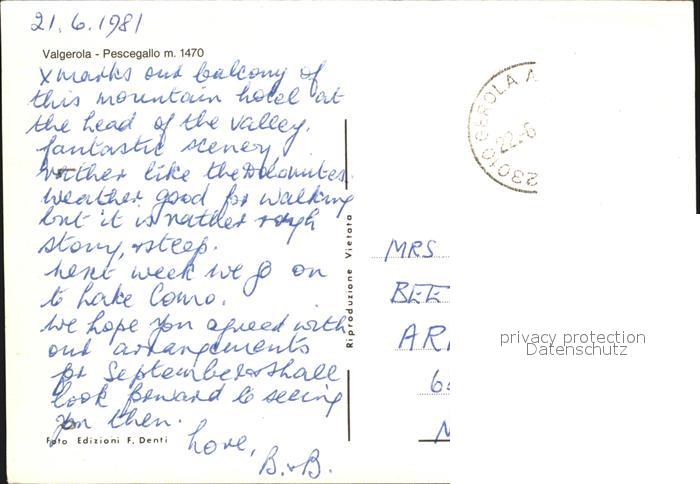 21.6.1981
Valgerola - Pescegallo m. 1470
X marks our balcony of
this mountain hotel at
the head of the valley.
fantastic scenery
rather like the Dolomites.
weather good for walking
but it is rather rough
stony, & steep.
next week we go on
to Lake Como.
We hope you agreed with
our arrangements
for September & shall
look forward to seeing
you then.
Love,
B. & B.
Foto Edizioni F. Denti
Riproduzione Vietata
23010 GEROLA A
22-6
MRS
BEE
AR
6
privacy protection
Datenschutz